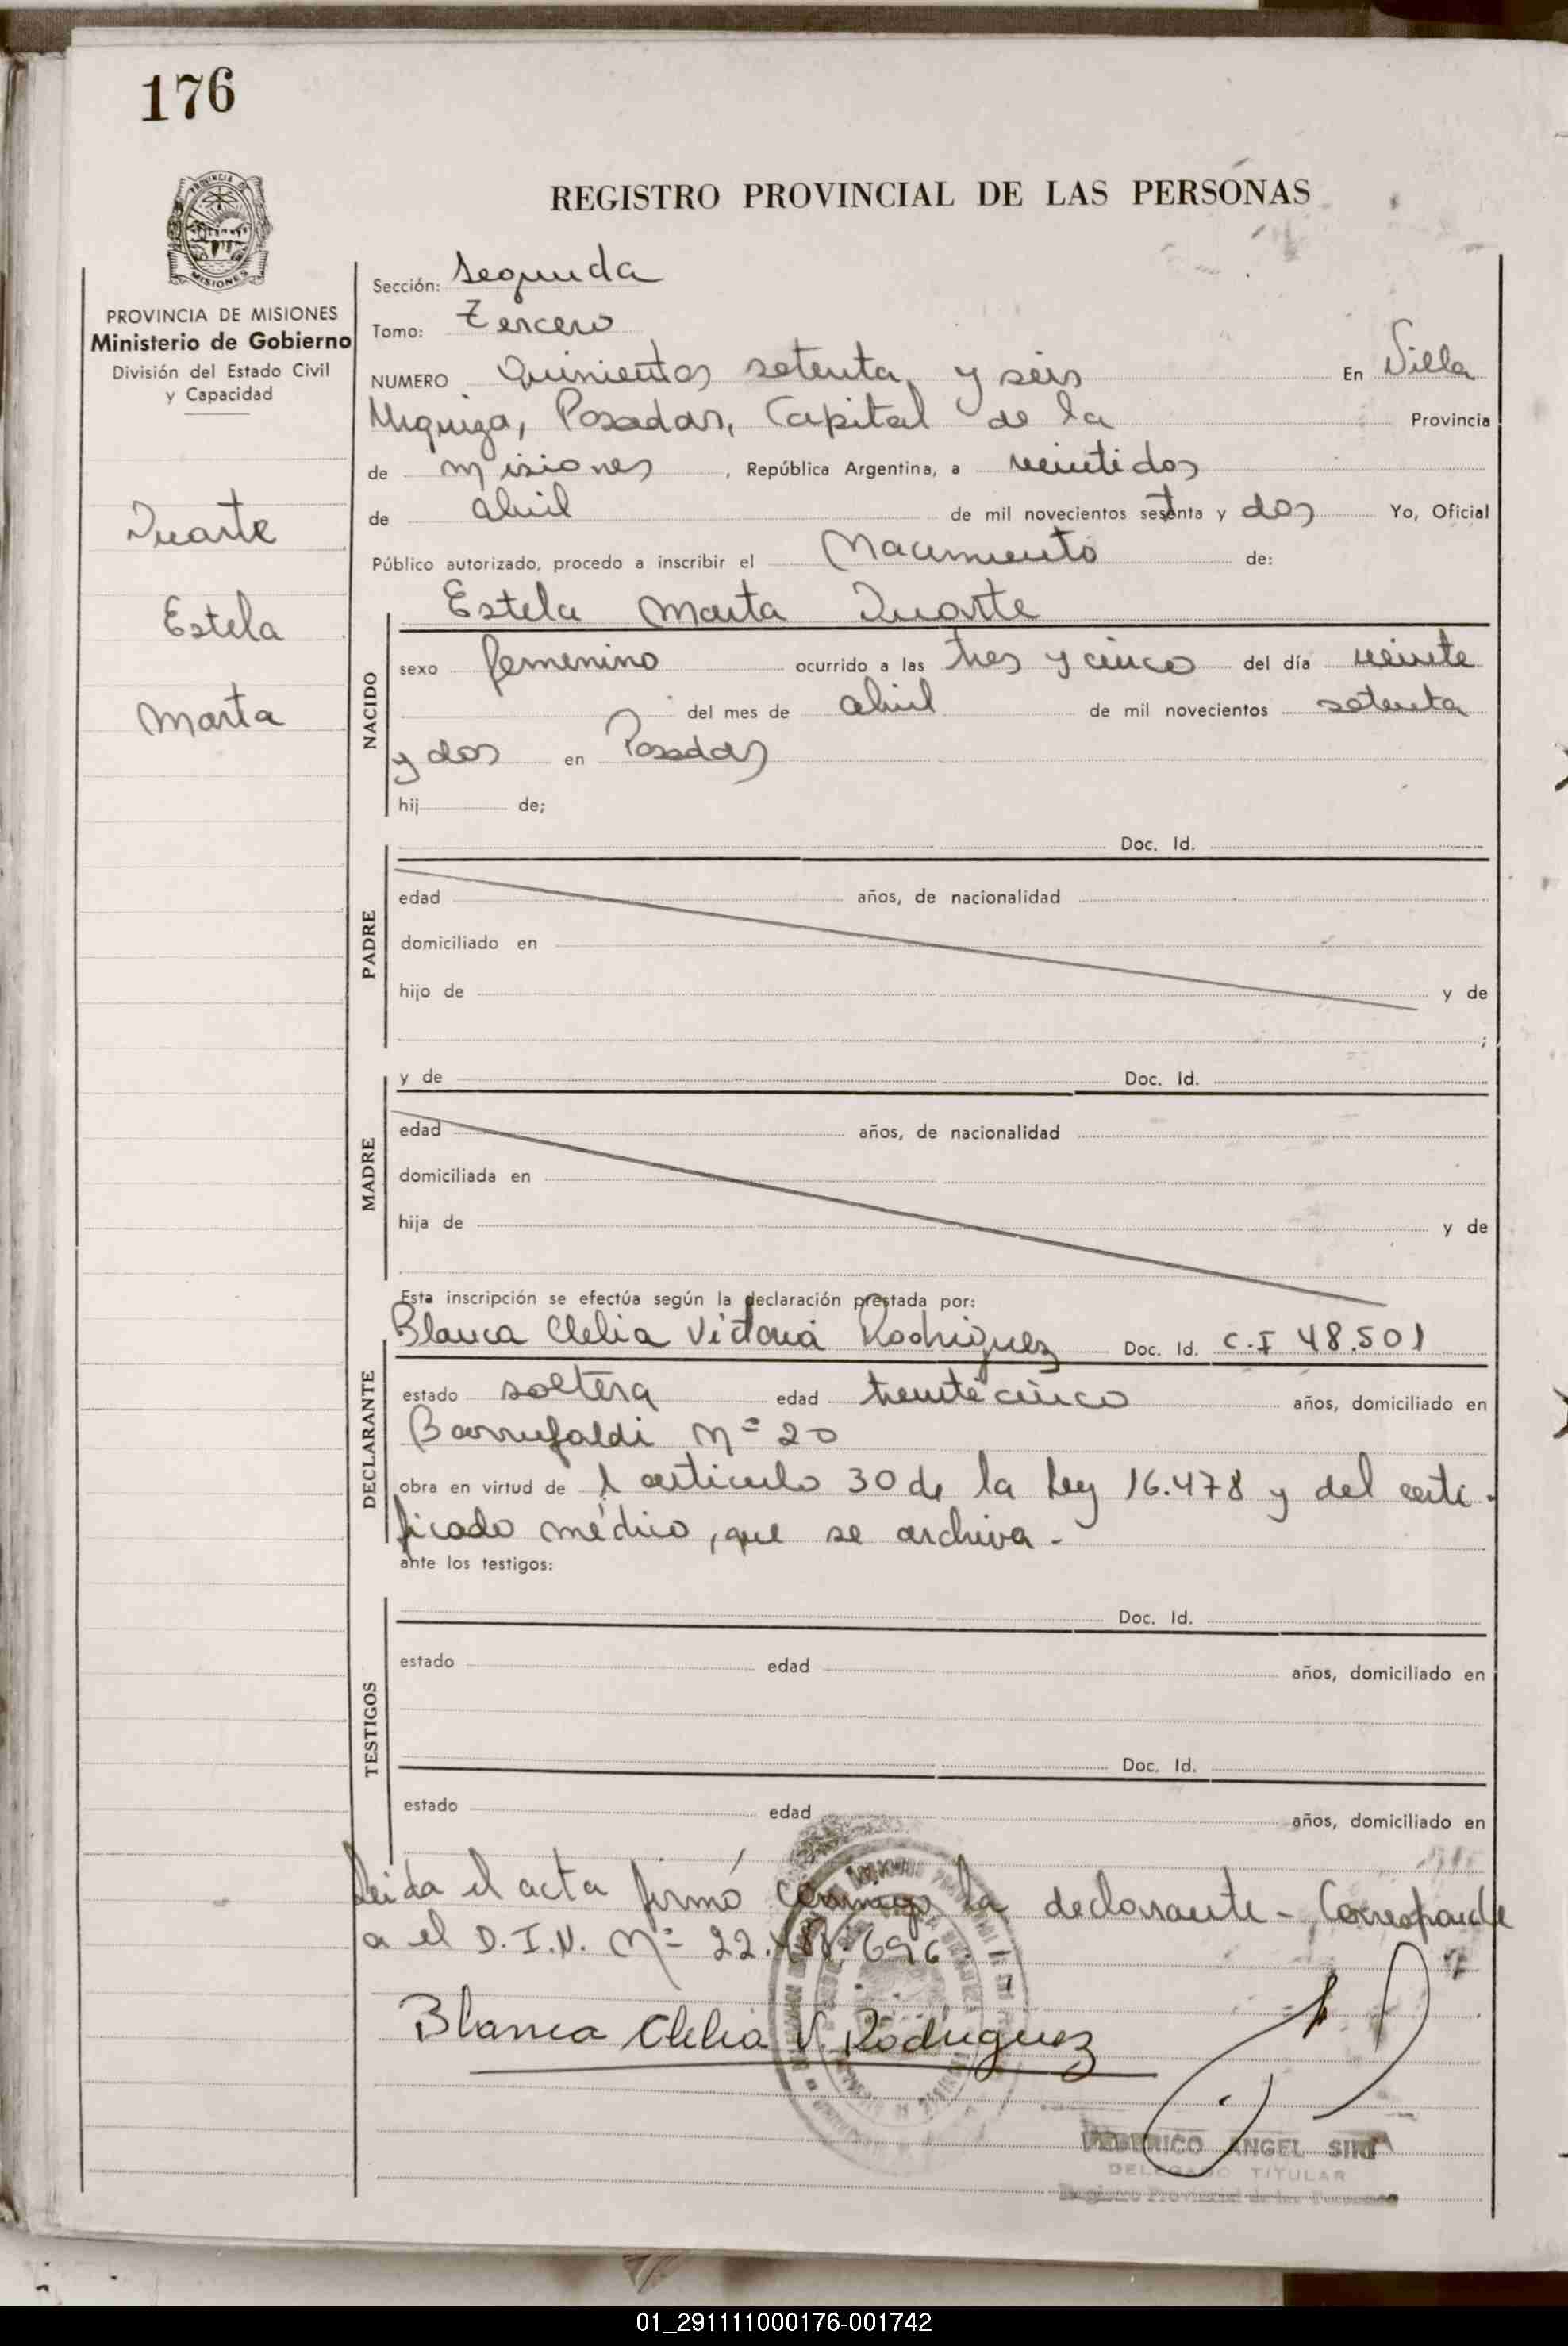 176
REGISTRO PROVINCIAL DE LAS PERSONAS
PROVINCIA DE MISIONES
Ministerio de Gobierno
División del Estado Civil
y Capacidad
Duarte
Estela
Marta
Sección: Segunda
Tomo: Tercero
NUMERO Quinientos setenta y seis En Villa
Urquiza, Posadas, Capital de la Provincia
de Misiones , República Argentina, a veintidos
de abril de mil novecientos setenta y dos Yo, Oficial
Público autorizado, procedo a inscribir el Nacimiento de:
Estela Marta Duarte
NACIDO
sexo femenino ocurrido a las tres y cinco del día veinte
del mes de abril de mil novecientos setenta
y dos en Posadas
hij de;
PADRE
Doc. Id.
edad años, de nacionalidad
domiciliado en
hijo de y de
;
MADRE
y de Doc. Id.
edad años, de nacionalidad
domiciliada en
hija de y de
Esta inscripción se efectúa según la declaración prestada por:
DECLARANTE
Blanca Clelia Victoria Rodriguez Doc. Id. C.I 48.501
estado soltera edad treinta cinco años, domiciliado en
Barrufaldi Nº 20
obra en virtud de l articulo 30 de la Ley 16.478 y del certi-
ficado médico, que se archiva.-
ante los testigos:
TESTIGOS
Doc. Id.
estado edad años, domiciliado en
Doc. Id.
estado edad años, domiciliado en
Leida el acta firmó conmigo la declarante - Corresponde
a el D.I.N. Nº 22. 696
Blanca Clelia V. Rodriguez
FEDERICO ANGEL SIRI
DELEGADO TITULAR
Registro Provincial de las Personas
01_291111000176-001742